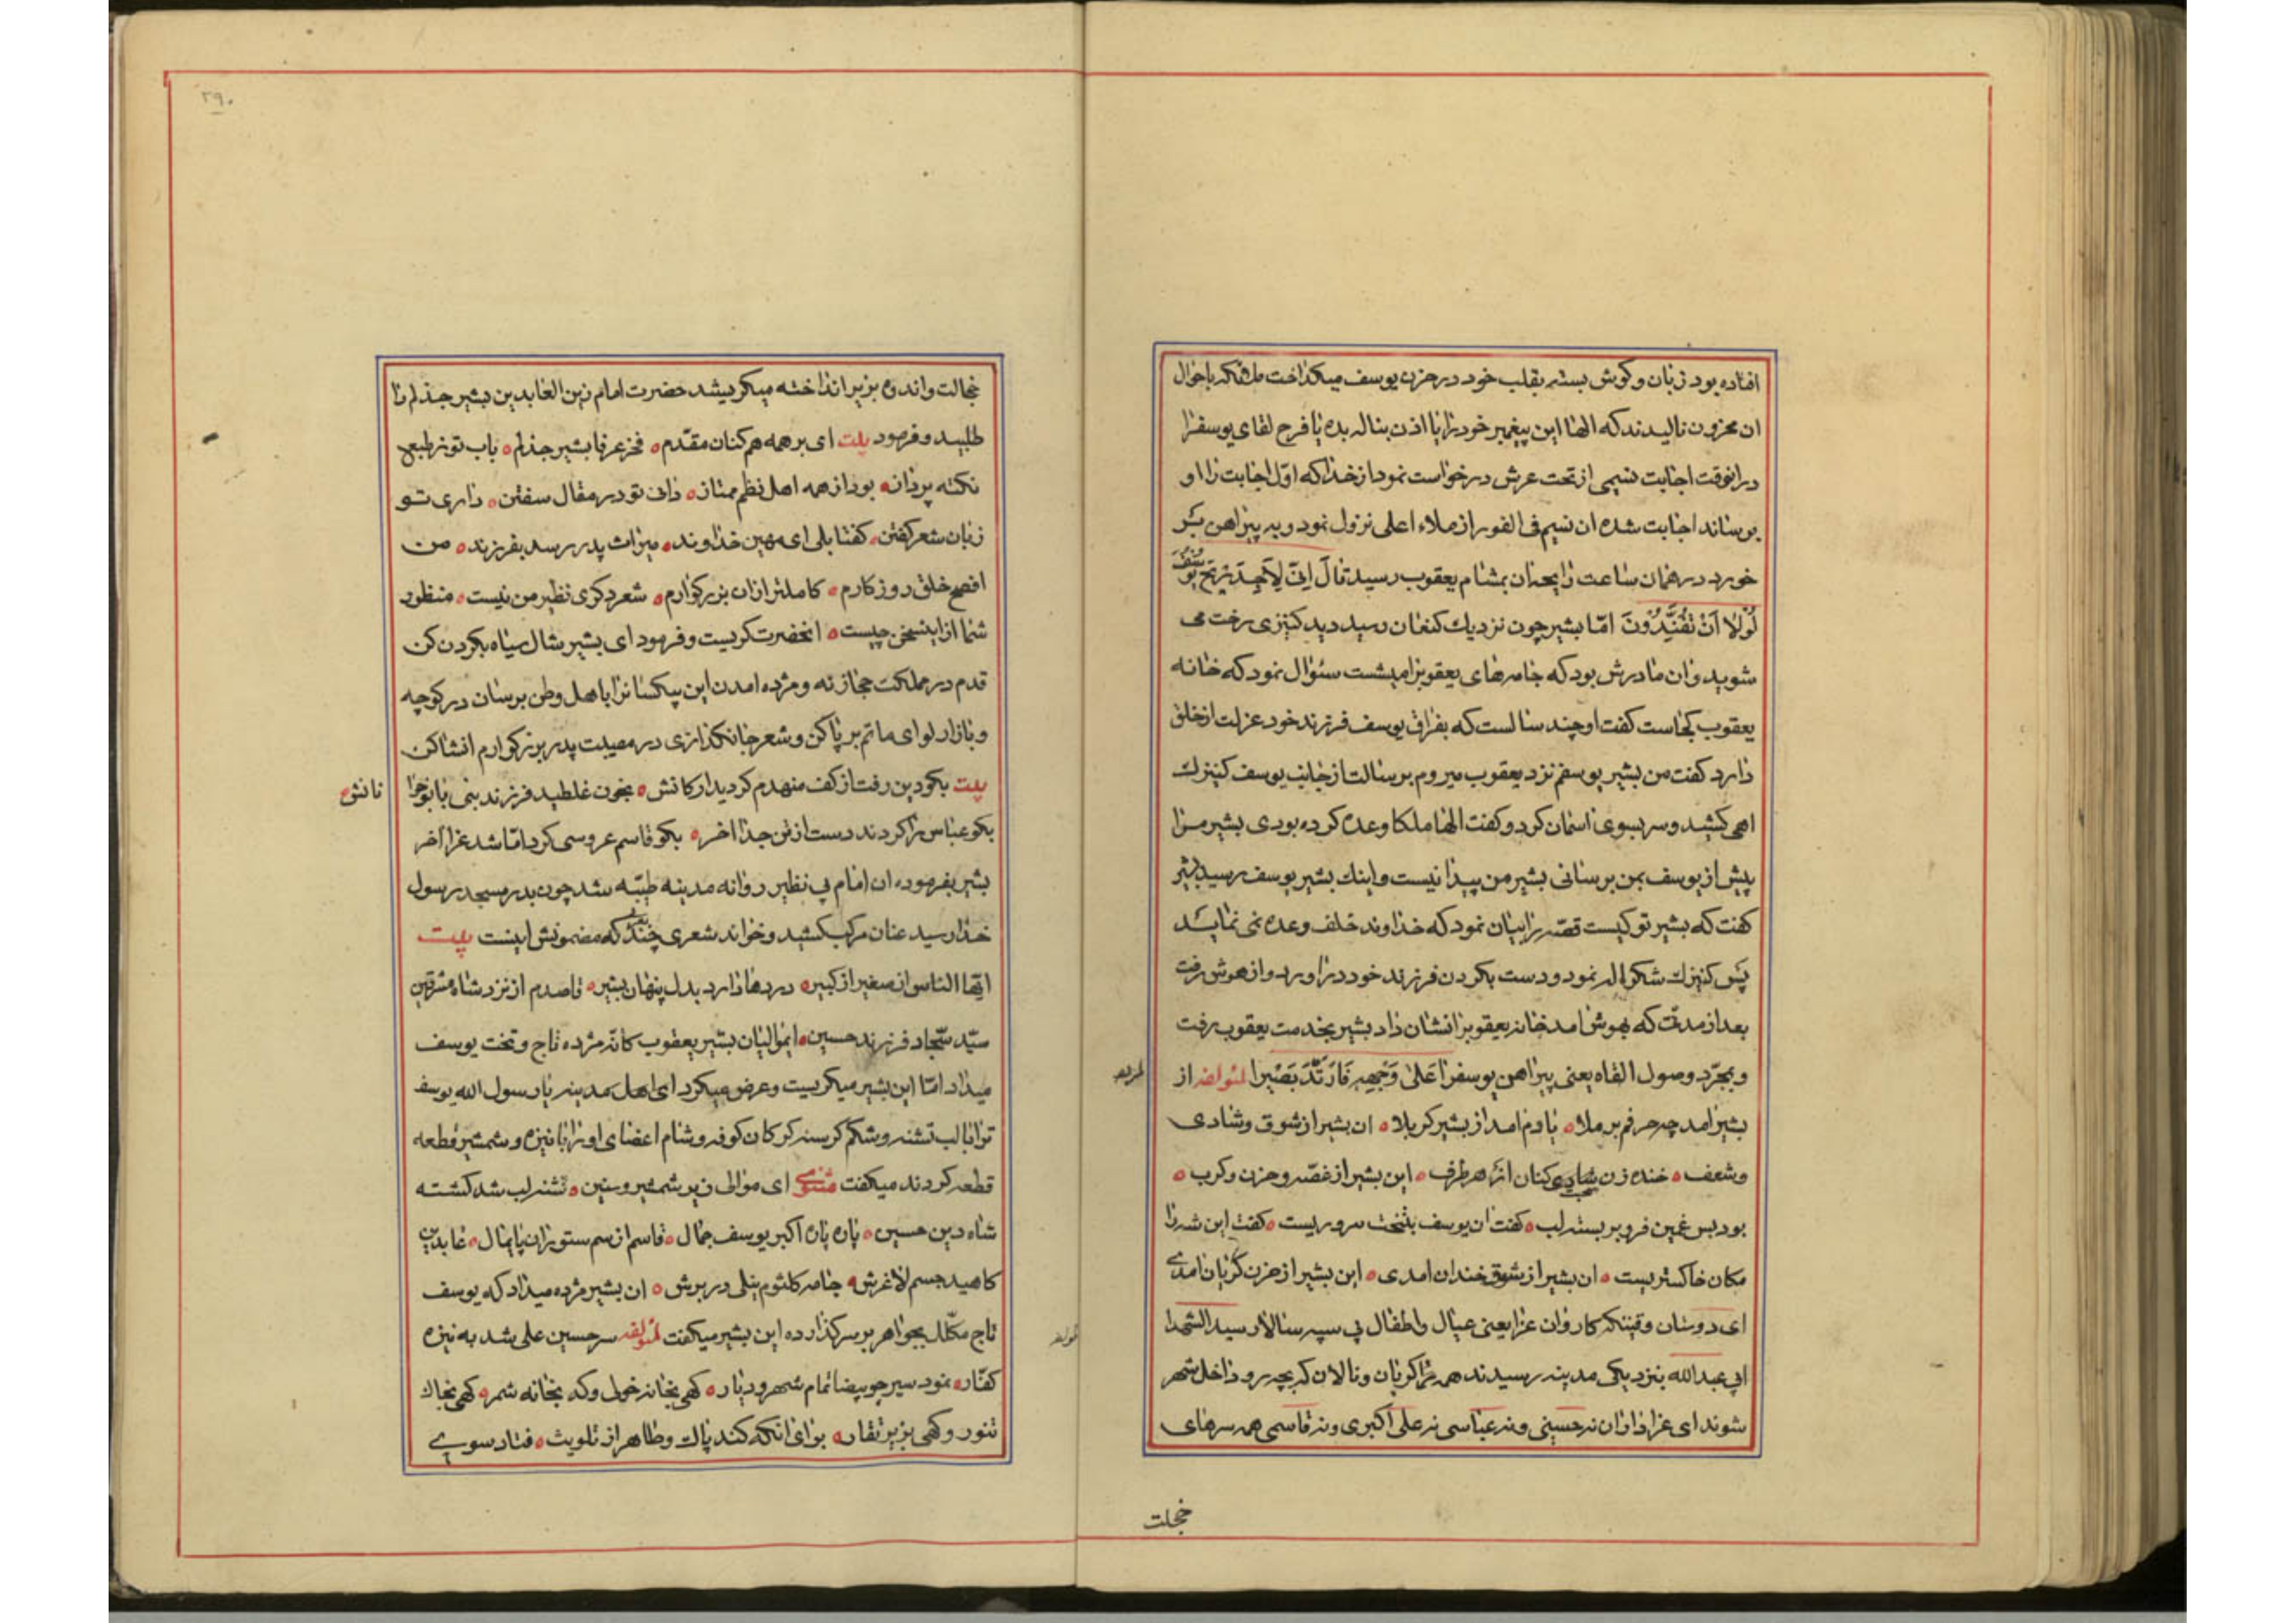 افتاده بود زبان و گوش بسته بقلب خود در حزن یوسف میگداخت ملائکه باحوال
ان محزون نالیدند که الها این پیغمبر خود را یا اذن بناله بده یا فرح لقای یوسف را
در انوقت اجابت نسیمی از تحت عرش درخواست نمود از خدا که اول اجابت را او
برساند اجابت شده ان نسیم فی الفور از ملاء اعلی نزول نمود و به پیراهن بر
خورد در همان ساعت رایحه ان بمشام یعقوب رسید قالَ اِنّی لَاَجِدُ رِیحَ یُوسُفَ
لَوْلا اَنْ تُفَنِّدُونَ امّا بشیر چون نزدیك کنعان رسید دید کنیزی رخت می
شوید و ان مادرش بود که جامه های یعقوب را میشست سئوال نمود که خانه
یعقوب کجاست گفت او چند سالست که بفراق یوسف فرزند خود عزلت از خلق
دارد گفت من بشیر یوسفم نزد یعقوب میروم برسالت از جانب یوسف کنیزك
اهی کشید و سر بسوی اسمان کرد و گفت الها ملکا وعده کرده بودی بشیر مرا
پیش از یوسف بمن برسانی بشیر من پیدا نیست و اینك بشیر یوسف رسید بشیر
گفت که بشیر تو کیست قصّه را بیان نمود که خداوند خلف وعده نمی نماید
پس کنیزك شکر اله نمود و دست بگردن فرزند خود در اورد و از هوش رفت
بعد از مدتی که بهوش امد خانه یعقوب را نشان داد بشیر بخدمت یعقوب رفت
و بمجرّد وصول القاه یعنی پیراهن یوسف را عَلی وَجْهِهِ فَارْتَدَّ بَصیرا لمؤلفه از
بشیر امد چه حرفم بر ملا ه یادم امد از بشیر کربلا ه ان بشیر از شوق و شادی
و شعف ه خنده زن شادی کنان از هر طرف ه این بشیر از غصّه و حزن و کرب ه
بود بس غمین فرو بر بسته لب ه گفت ان یوسف بتخت سروریست ه گفت این شه را
مکان خاکستریست ه ان بشیر از شوق خندان امدی ه این بشیر از حزن گریان امدی
ای دوستان وقتیکه کاروان عزا یعنی عیال و اطفال بی سپه سالار سید الشهدا
ابی عبد الله بنزدیکی مدینه رسیدند همه را گریان و نالان که بچه رو داخل شهر
شوند ای عزاداران نه حسینی و نه عباسی نه علی اکبری و نه قاسمی همه سرهای
خجلت
۲۹۰
خجالت و اندوه بزیر انداخته میگریستند حضرت امام زین العابدین بشیر جذلم را
طلبید و فرمود بیت ای بر همه همکنان مقدّم ه فخر عرفا بشیر جذلم ه باب تو ز طبع
نکته پرداز ه بود از همه اهل نظم ممتاز ه دانی تو در مقال سفتن ه داری تو
زبان شعر گفتن ه گفتا بلی ای مهین خداوند ه میراث پدر رسد بفرزند ه من
افصح خلق روزگارم ه کاملتر از ان بزرگوارم ه شعر دگری نظیر من نیست ه منظور
شما از این سخن چیست ه انحضرت گریست و فرمود ای بشیر شال سیاه بگردن کن
قدم در مملکت حجاز نه و مژده امدن این بیکسان را باهل وطن برسان در کوچه
و بازار لوای ماتم بر پا کن و شعر جانگدازی در مصیبت پدر بزرگوارم انشا کن
بیت بگو دین رفت از کف منهدم گردید ارکانش ه بخون غلطید فرزند نبی با نوجوا
نانش ه
بگو عباس را کردند دست از تن جدا اخر ه بگو قاسم عروسی کرد امّا شد عزا اخر
بشیر بفرموده ان امام بی نظیر روانه مدینه طیّبه شد چون بدر مسجد رسول
خدا رسید عنان مرکب کشید و خواند شعری چند که مضمونش اینست بیت
ایّها الناس از صغیر از کبیر ه دردها دارد بدل پنهان بشیر ه قاصدم از نزد شاه مشرقین
سیّد سجّاد فرزند حسین ه ایموالیان بشیر یعقوب کانه مژده تاج و تخت یوسف
میداد امّا این بشیر میگریست و عرض میکرد ای اهل مدینه یا رسول الله یوسف
ترا با لب تشنه و شکم گرسنه گرگان کوفه و شام اعضای او را با نیزه و شمشیر قطعه
قطعه کردند میگفت مثنوی ای موالی زیر شمشیر و سنین ه تشنه لب شد کشته
شاه دین حسین ه پاره پاره اکبر یوسف جمال ه قاسم از سم ستوران پایمال ه عابدین
کاهید جسم لاغرش ه جامه کلثوم نیلی در برش ه ان بشیر مژده میداد که یوسف
تاج مکلّل بجواهر بر سر گذارده این بشیر میگفت لمؤلفه سر حسین علی شد به نیزه
کفّار ه نمود سیر چو بیضا تمام شهر و دیار ه گهی بخانه خولی و گه بخانه شمر ه گهی بخاك
تنور و گهی بزیر تغار ه برای انکه کند پاك و طاهر از تلویث ه فتاد سوی